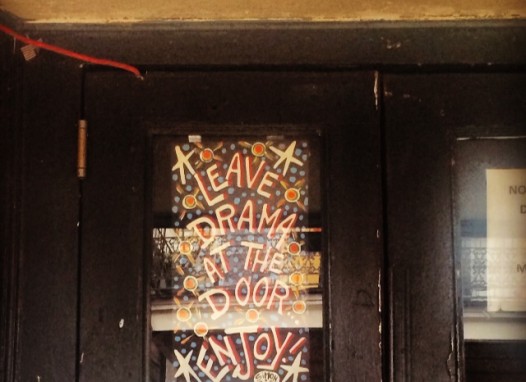 LEAVE
DRAMA
AT THE
DOOR
ENJOY!
NO